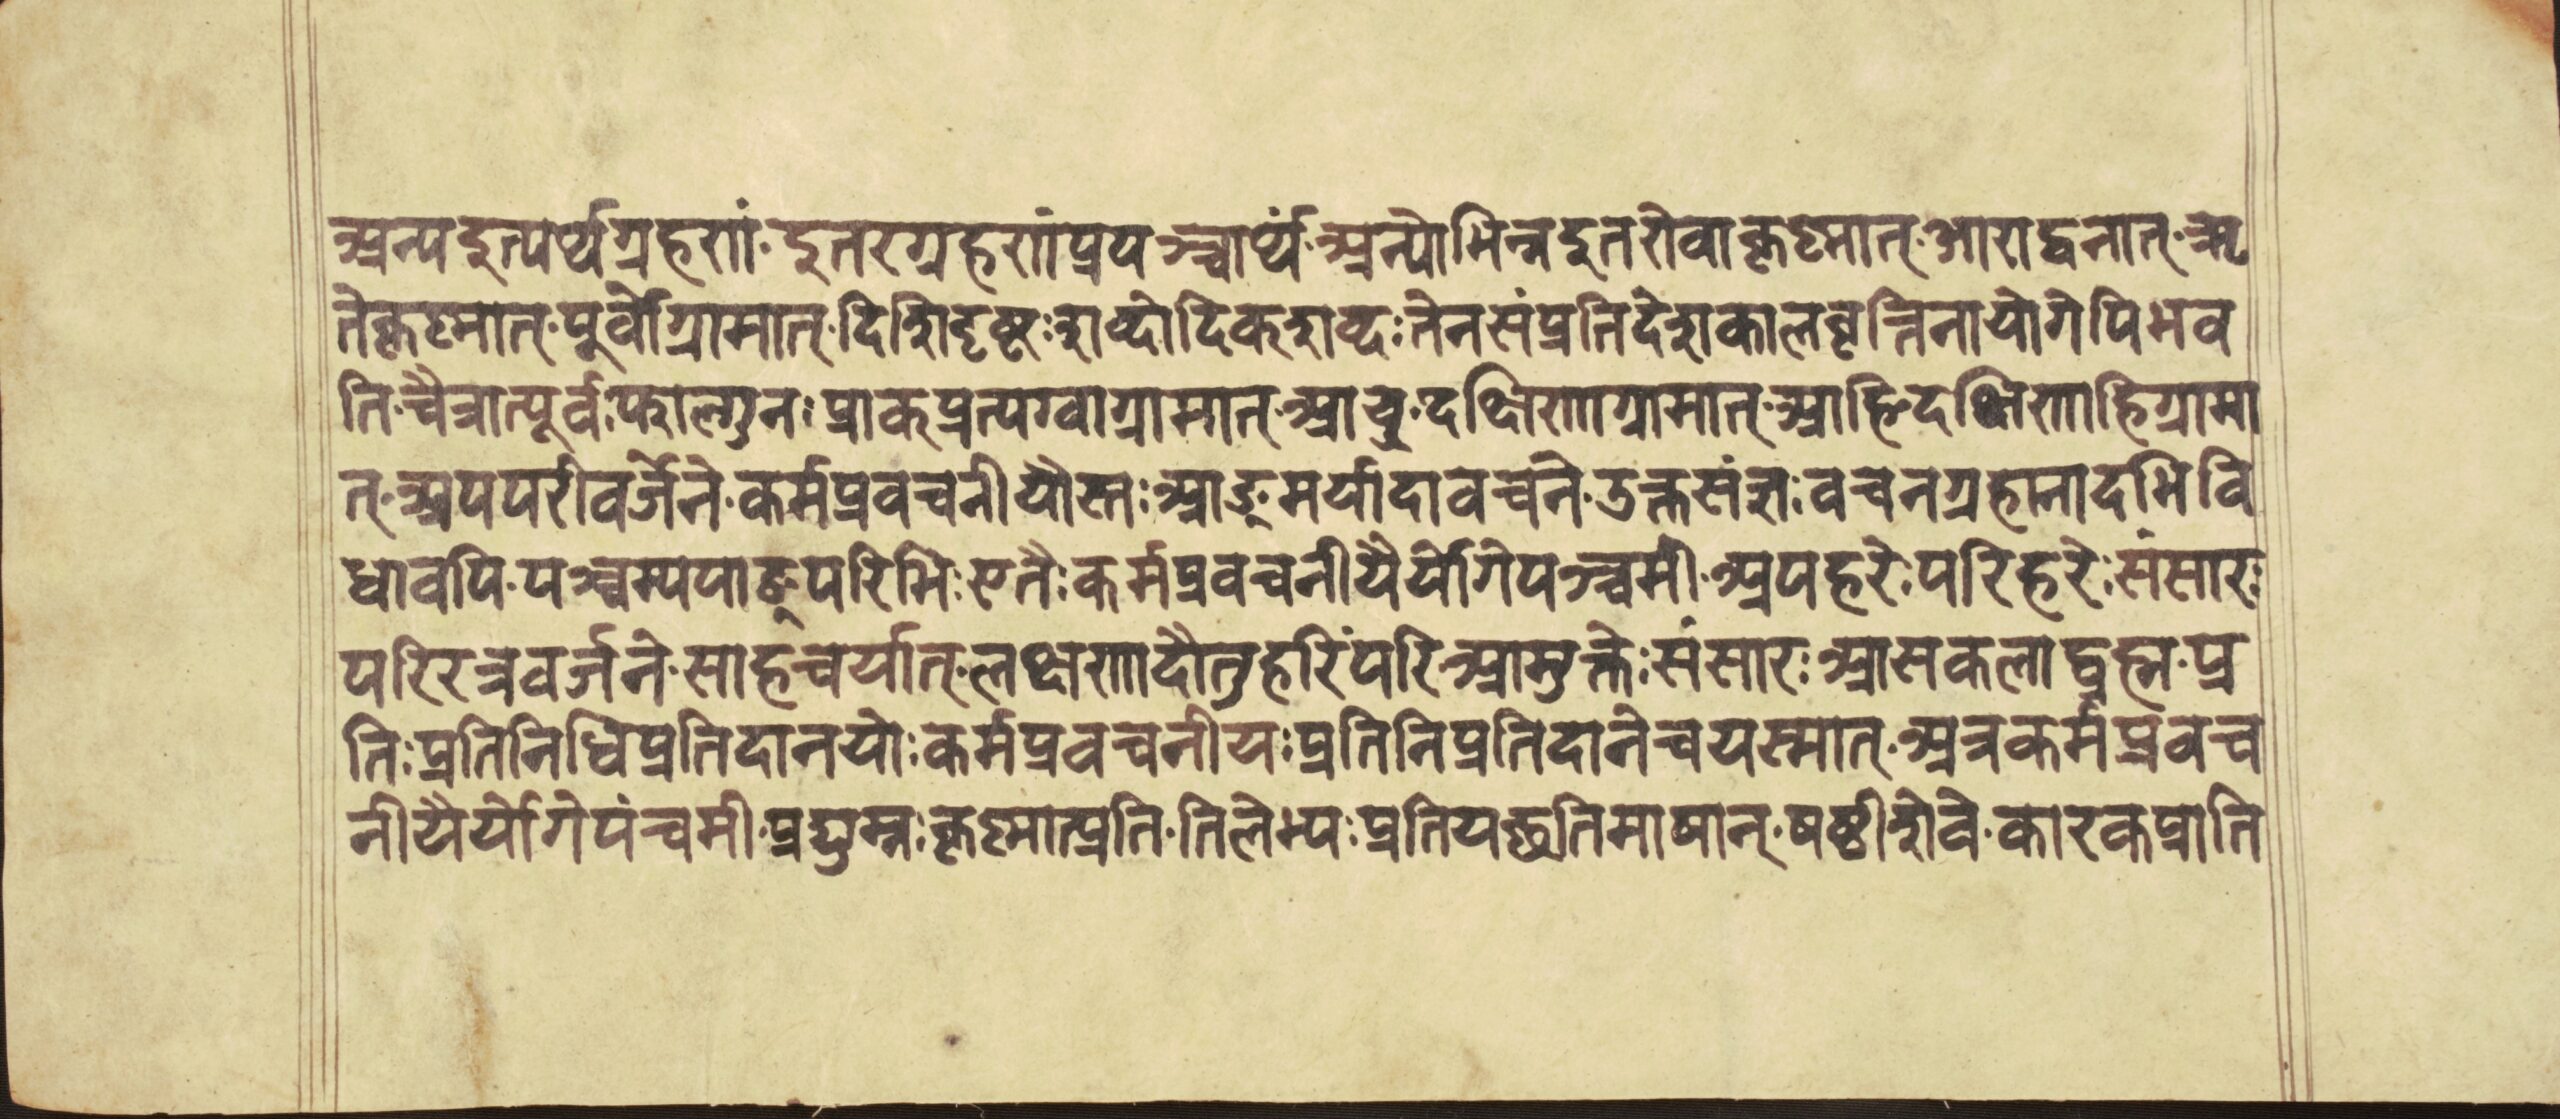 अन्यइत्यर्थग्रहणं॰ इतरग्रहणंप्रपञ्चार्थं॰ अन्योभिन्नइतरोवाकृष्णात्॰ आराद्वनात्॰ ऋ
तेकृष्णात्॰ पूर्वोग्रामात्॰ दिशिदृष्टः शब्दोदिक्शब्दः तेनसंप्रतिदेशकालवृत्तिनायोगेपिभव
ति॰ चैत्रात्पूर्वः फाल्गुनः प्राक्प्रत्यग्वाग्रामात्॰ आच्॰ दक्षिणाग्रामात्॰ आहि॰ दक्षिणाहिग्रामा
त्॰ अपपरीवर्जने॰ कर्मप्रवचनीयौस्तः आङ्मर्यादावचने॰ उक्तसंज्ञः वचनग्रहानादभिवि
धावपि॰ पञ्चम्यपाङ्परिभिः एतैः कर्मप्रवचनीयैर्योगेपञ्चमी॰ अपहरेः परिहरेः संसारः
परिरत्रवर्जने॰ साहचर्यात्॰ लक्षणादौतुहरिंपरि॰ आमुक्तेः संसारः आसकलाद्ब्रह्म॰ प्र
तिः प्रतिनिधिप्रतिदानयोः कर्मप्रवचनीयः प्रतिनिप्रतिदानेचयस्मात्॰ अत्रकर्मप्रवच
नीयैर्योगेपंचमी॰ प्रद्युम्नः कृष्णात्प्रति॰ तिलेभ्यः प्रतियच्छतिमाषान्॰ षष्ठीशेषे॰ कारकप्राति